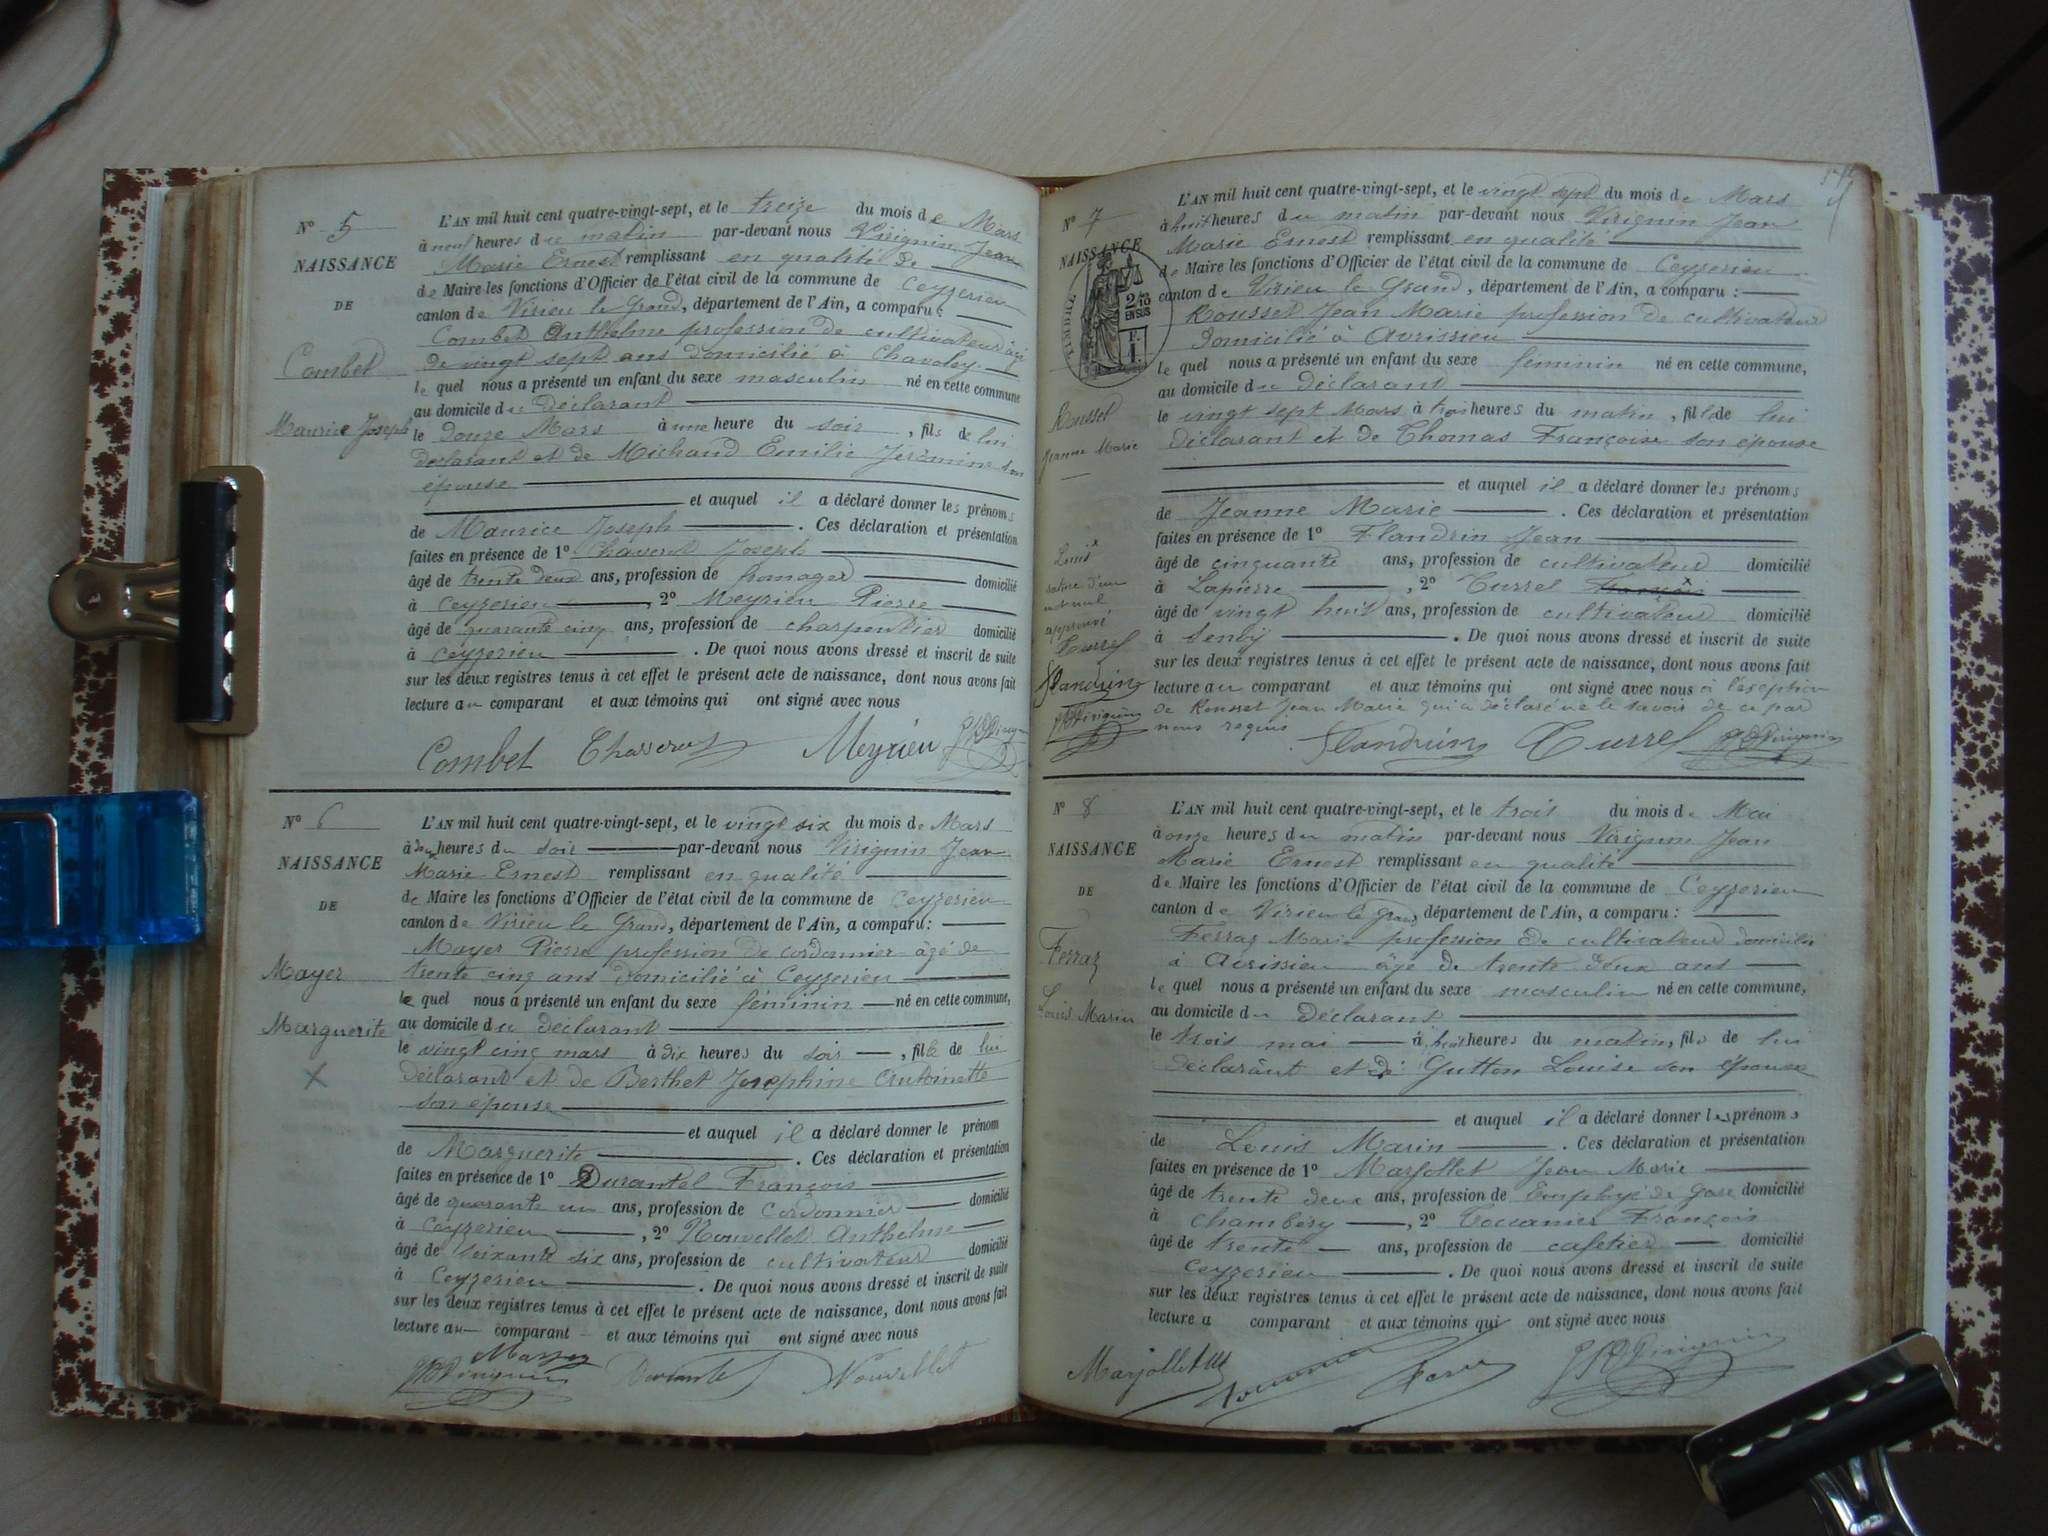 N° 5
NAISSANCE
DE
Combet
Maurice Joseph
L'AN mil huit cent quatre-vingt-sept, et le treize du mois de Mars
à neuf heures du matin par-devant nous Virignin Jean
Marie Ernest remplissant en qualité de
de Maire les fonctions d'Officier de l'état civil de la commune de Ceyzerieu
canton de Virieu le Grand, département de l'Ain, a comparu :
Combet Anthelme profession de cultivateur âgé
de vingt sept ans domicilié à Chavoley
le quel nous a présenté un enfant du sexe masculin né en cette commune
au domicile du déclarant
le douze Mars à une heure du soir, fils de lui
déclarant et de Michaud Emilie Jéromine son
épouse
et auquel il a déclaré donner les prénoms
de Maurice Joseph. Ces déclaration et présentation
faites en présence de 1° Chasserot Joseph
âgé de trente deux ans, profession de domicilié
à Ceyzerieu, 2° Meyrieu Pierre
âgé de quarante cinq ans, profession de charpentier domicilié
à Ceyzerieu. De quoi nous avons dressé et inscrit de suite
sur les deux registres tenus à cet effet le présent acte de naissance, dont nous avons fait
lecture au comparant et aux témoins qui ont signé avec nous
Combet Meyrieu
N° 6
NAISSANCE
DE
Mayer
Marguerite
L'AN mil huit cent quatre-vingt-sept, et le vingt six du mois de Mars
à heures du soir par-devant nous Virignin Jean
Marie Ernest remplissant en qualité
de Maire les fonctions d'Officier de l'état civil de la commune de Ceyzerieu
canton de Virieu le Grand, département de l'Ain, a comparu :
Mayer Pierre profession de cordonnier âgé de
trente cinq ans domicilié à Ceyzerieu
le quel nous a présenté un enfant du sexe féminin né en cette commune,
au domicile du déclarant
le vingt cinq mars à dix heures du soir, fille de lui
déclarant et de Berthet Josephine Antoinette
son épouse
et auquel il a déclaré donner le prénom
de Marguerite. Ces déclaration et présentation
faites en présence de 1° Durantel François
âgé de quarante un ans, profession de cordonnier domicilié
à Ceyzerieu, 2° Nouvellet Anthelme
âgé de soixante six ans, profession de cultivateur domicilié
à Ceyzerieu. De quoi nous avons dressé et inscrit de suite
sur les deux registres tenus à cet effet le présent acte de naissance, dont nous avons fait
lecture au comparant et aux témoins qui ont signé avec nous
Nouvellet
N° 7
NAISSANCE
TIMBRE
2/10
EN SUS
F.
1.
Rousset
Jeanne Marie
L'AN mil huit cent quatre-vingt-sept, et le vingt sept du mois de Mars
à huit heures du matin par-devant nous Virignin Jean
Marie Ernest remplissant en qualité
de Maire les fonctions d'Officier de l'état civil de la commune de Ceyzerieu
canton de Virieu le Grand, département de l'Ain, a comparu :
Rousset Jean Marie profession de cultivateur
domicilié à Avrissieu
le quel nous a présenté un enfant du sexe féminin né en cette commune,
au domicile du déclarant
le vingt sept Mars à trois heures du matin, fille de lui
déclarant et de Thomas Françoise son épouse
et auquel il a déclaré donner les prénoms
de Jeanne Marie. Ces déclaration et présentation
faites en présence de 1° Flandrin Jean
âgé de cinquante ans, profession de cultivateur domicilié
à Lapierre, 2° Turrel François
âgé de vingt huit ans, profession de cultivateur domicilié
à Senoy. De quoi nous avons dressé et inscrit de suite
sur les deux registres tenus à cet effet le présent acte de naissance, dont nous avons fait
lecture au comparant et aux témoins qui ont signé avec nous à l'exeption
de Rousset Jean Marie qui a déclaré ne le savoir de ce par
nous requis
Louis
rature d'un
mot nul
approuvé
Turrel
Flandrin
Flandrin Turrel
N° 8
NAISSANCE
DE
Ferraz
Louis Marin
L'AN mil huit cent quatre-vingt-sept, et le trois du mois de Mai
à onze heures du matin par-devant nous Virignin Jean
Marie Ernest remplissant en qualité
de Maire les fonctions d'Officier de l'état civil de la commune de Ceyzerieu
canton de Virieu le Grand, département de l'Ain, a comparu :
Ferraz Marie profession de cultivateur domicilié
à Avrissieu âgé de trente deux ans
le quel nous a présenté un enfant du sexe masculin né en cette commune,
au domicile du déclarant
le trois mai à huit heures du matin, fils de lui
déclarant et de Gutton Louise son épouse
et auquel il a déclaré donner les prénoms
de Louis Marin. Ces déclaration et présentation
faites en présence de 1° Marjollet Jean Marie
âgé de trente deux ans, profession de Employé de gare domicilié
à Chambéry, 2° Toccanier François
âgé de trente ans, profession de cafetier domicilié
Ceyzerieu. De quoi nous avons dressé et inscrit de suite
sur les deux registres tenus à cet effet le présent acte de naissance, dont nous avons fait
lecture a comparant et aux témoins qui ont signé avec nous
Marjollet